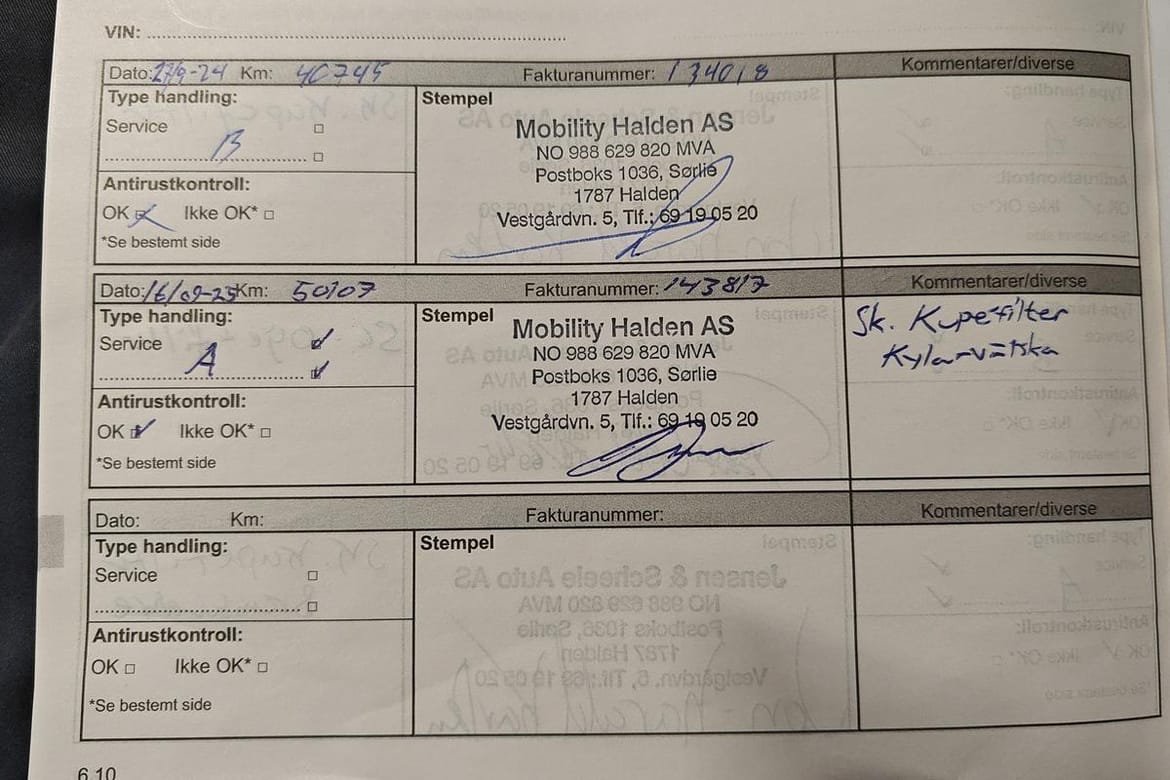 VIN:
Dato: 27/9-24 Km: 40745 Fakturanummer: 134018 Kommentarer/diverse
Type handling:
Service
B
Stempel
Mobility Halden AS
NO 988 629 820 MVA
Postboks 1036, Sørlie
1787 Halden
Vestgårdvn. 5, Tlf.: 69 19 05 20
Antirustkontroll:
OK Ikke OK*
*Se bestemt side
Dato: 16/09-25 Km: 50107 Fakturanummer: 143817 Kommentarer/diverse
Type handling:
Service
A
Stempel
Mobility Halden AS
NO 988 629 820 MVA
Postboks 1036, Sørlie
1787 Halden
Vestgårdvn. 5, Tlf.: 69 19 05 20
Sk. Kupefilter
Kylarvätska
Antirustkontroll:
OK Ikke OK*
*Se bestemt side
Dato: Km: Fakturanummer: Kommentarer/diverse
Type handling:
Service
Stempel
Antirustkontroll:
OK Ikke OK*
*Se bestemt side
6.10